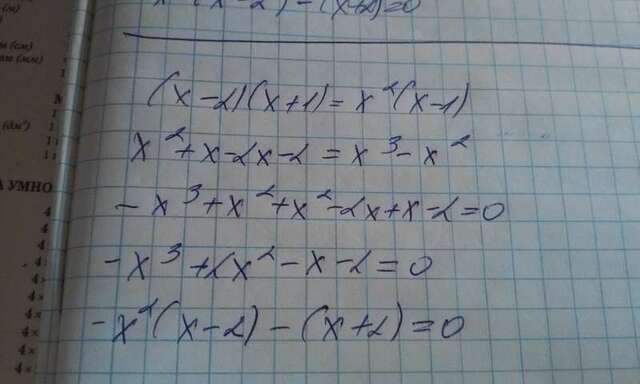 x² (x-2) - (x+2)=0
(x-2)(x+1)=x²(x-1)
x²+x-2x-2=x³-x²
-x³+x²+x²-2x+x-2=0
-x³+2x²-x-2=0
-x²(x-2)-(x+2)=0
А УМНО
4
4
4
4×
4×
4×
4×
4×
4×